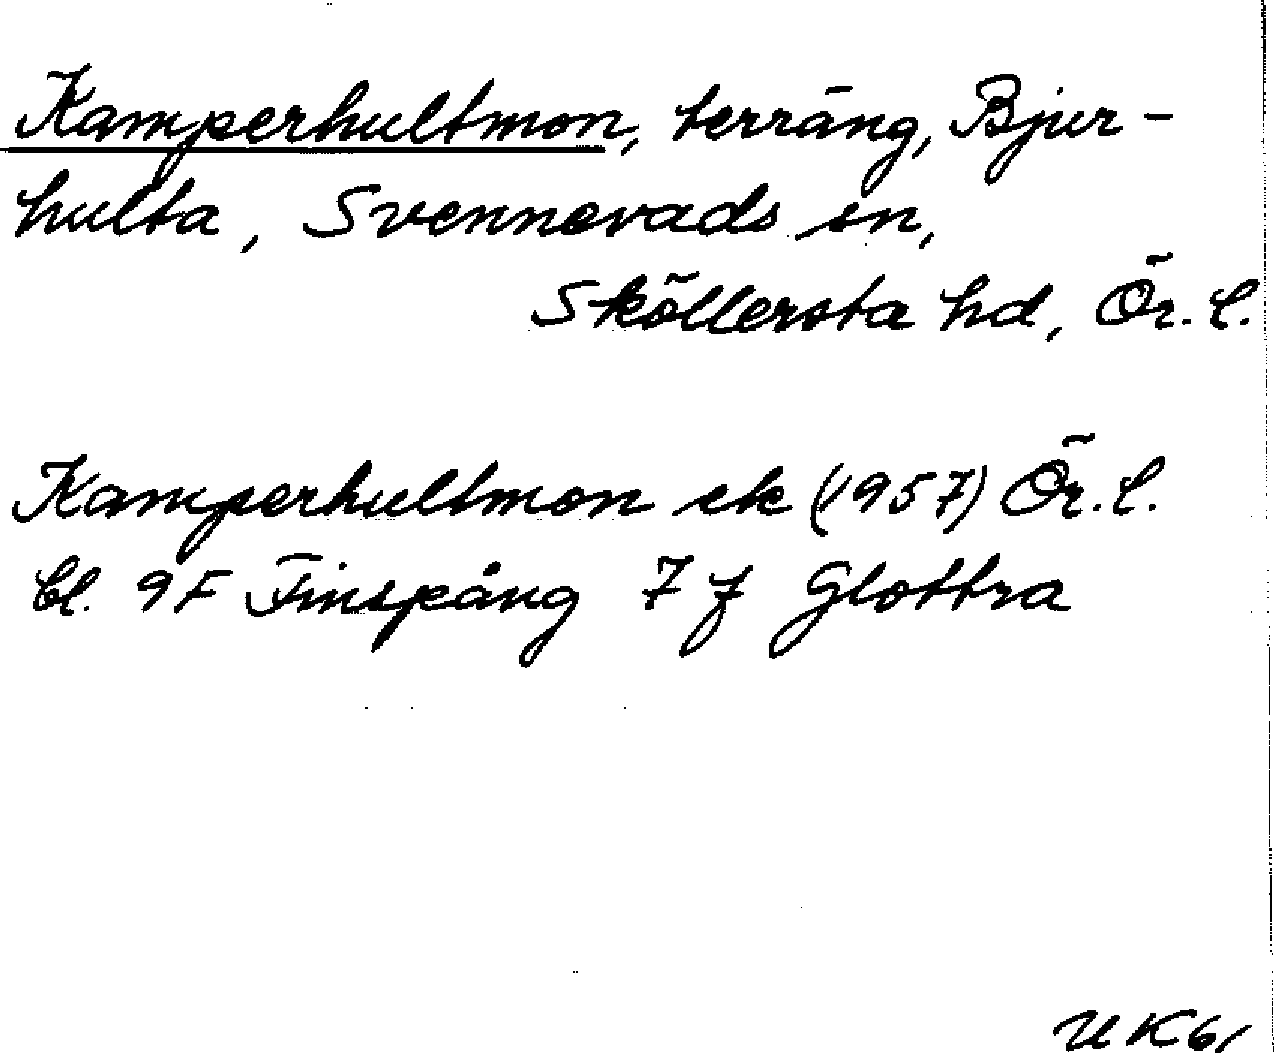 Kamperhultmon, terräng, Bjur-
hulta, Svennevads sn,
Sköllersta hd, Ör. l.
Kamperhultmon ek (1957) Ör. l.
bl. 9F Finspång 7 f Glottra
UK61